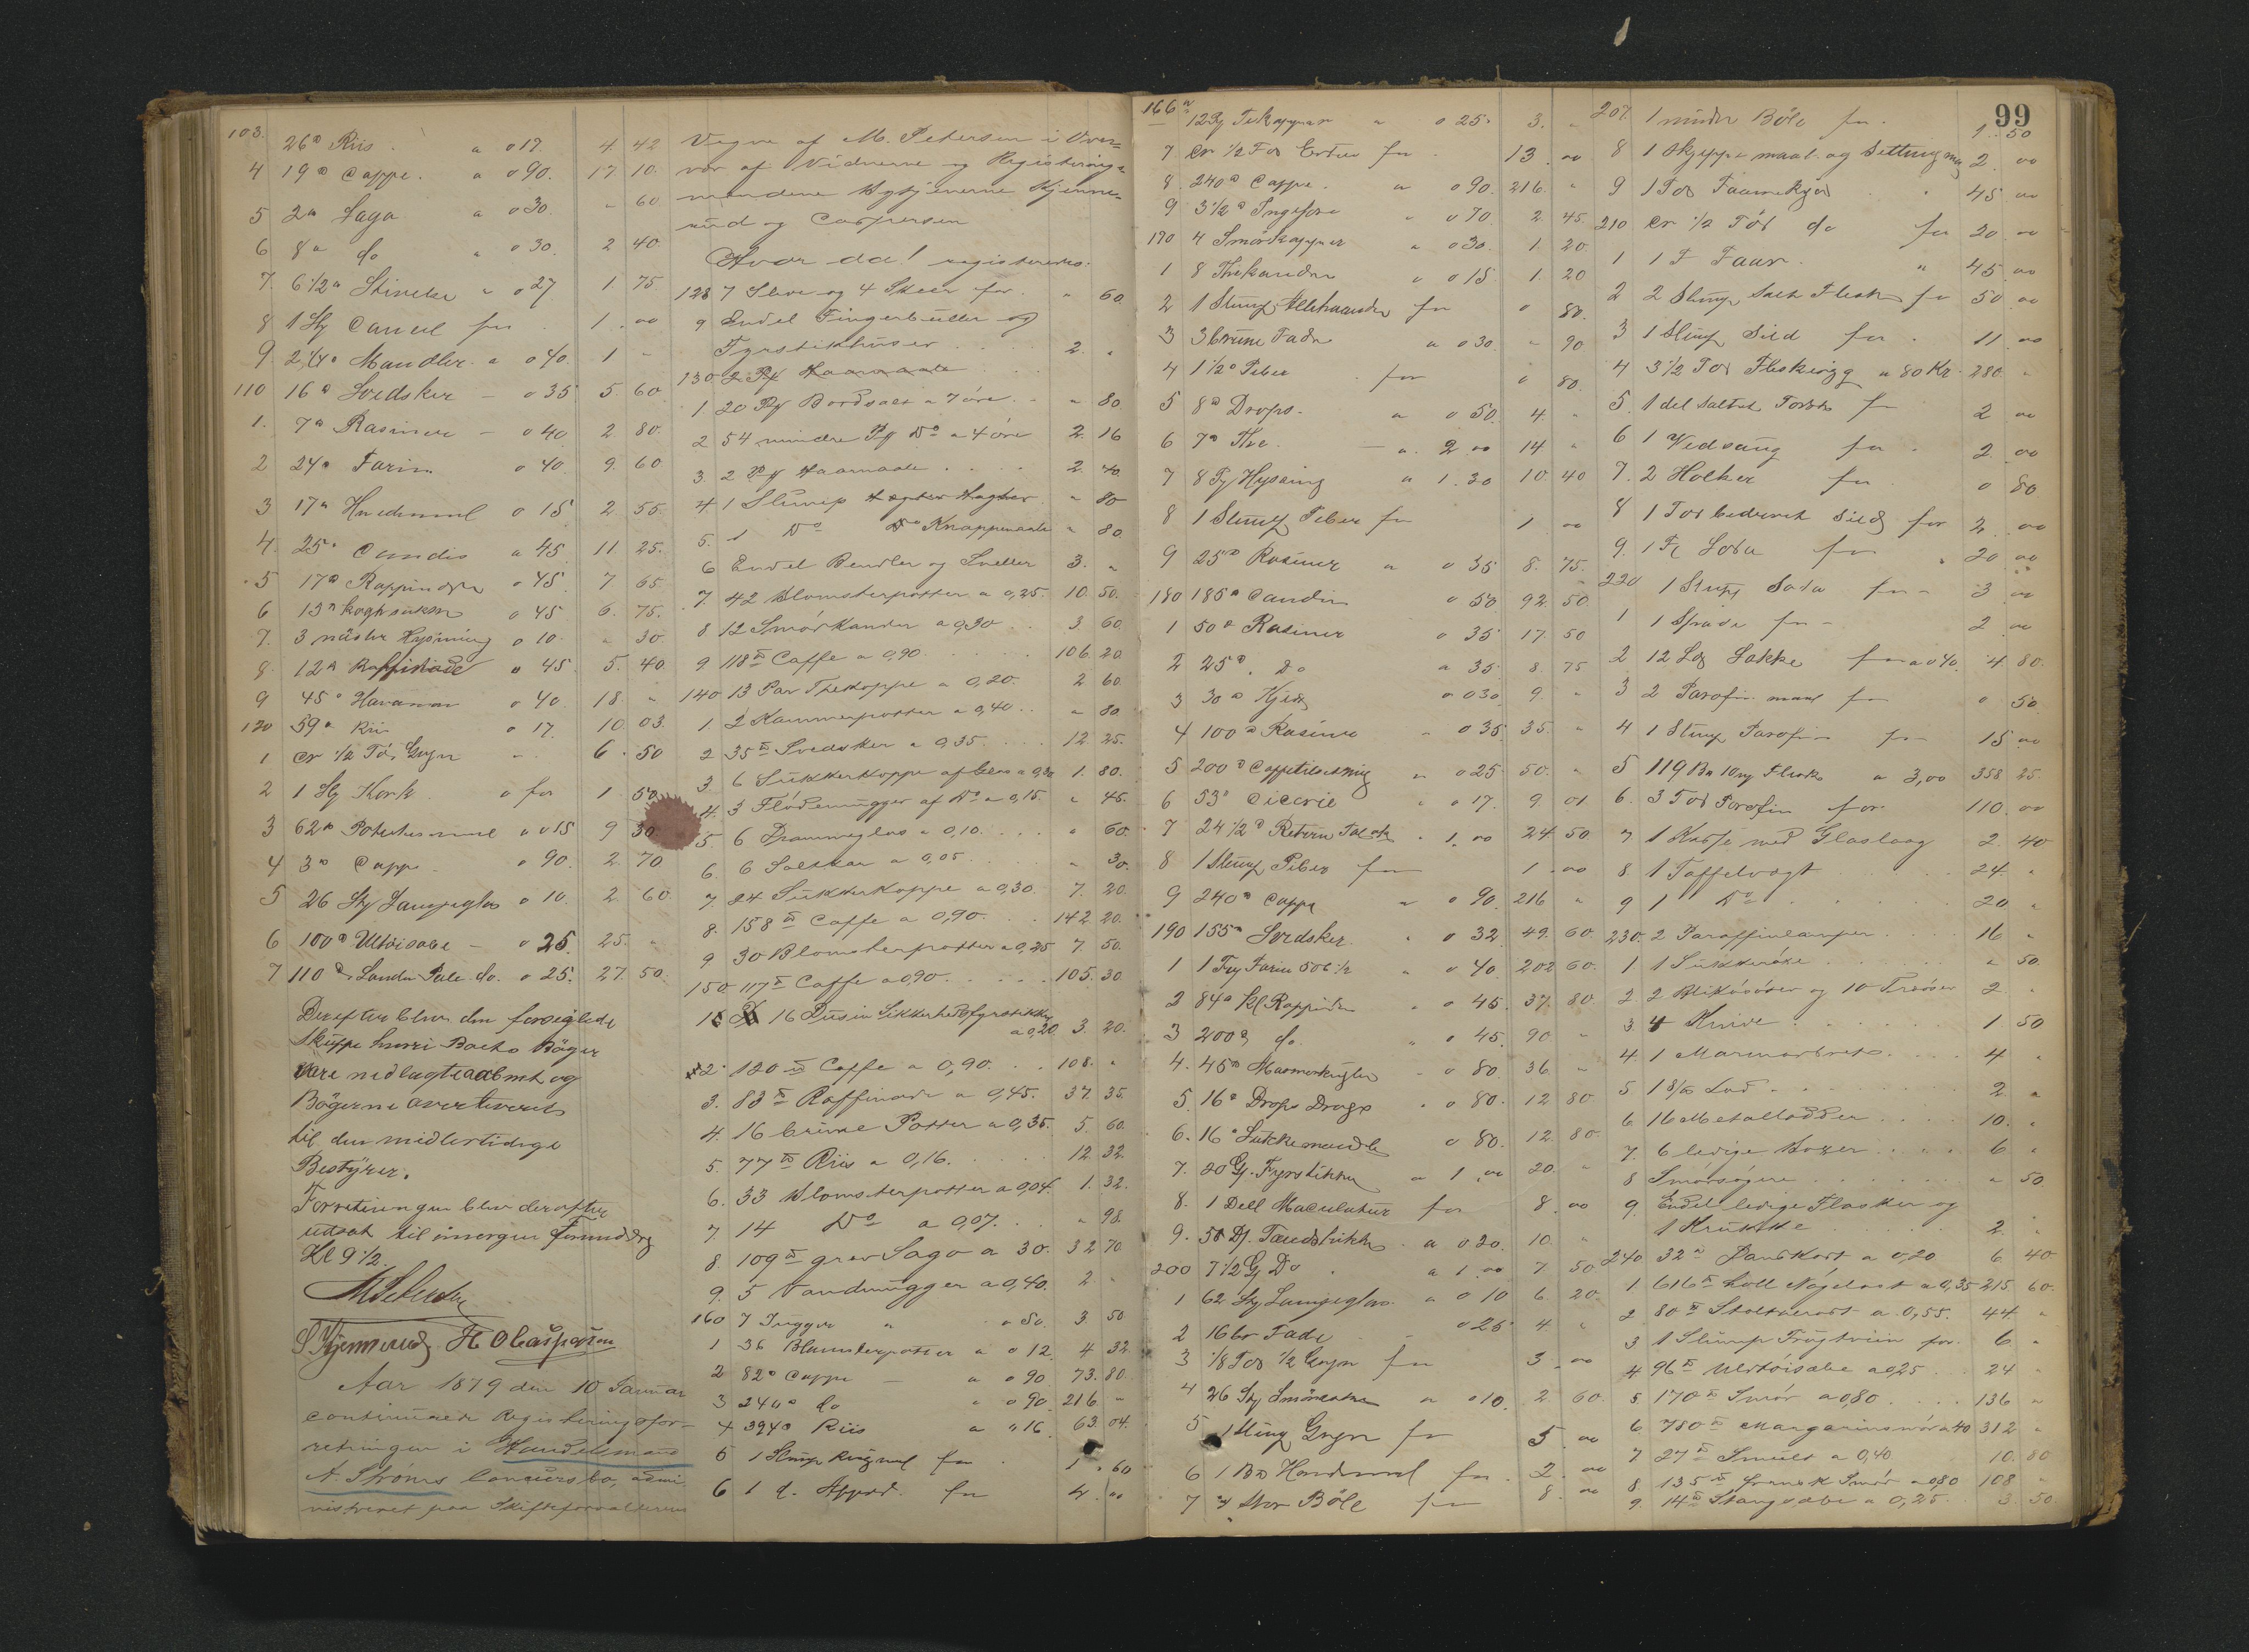 103. 26 ℔ Riis a o 17. 4 42
4 19 ℔ Caffe. a o 90. 17 10.
5 2 " Sago a o 30. " 60
6 8 " do " o 30. 2 40.
7 6 1/2 " Stivelse " o 27 1 75.
8 1 Sty Caneel for 1 . 00
9. 2 1/4 " Mandler a o 40. 1 "
110 16 " Svedsker - o 35 5. 60.
1. 7 " Rasiner - o 40 2. 80.
2 24 " Farin o 40 9. 60
3 17 " Hvedemeel o 15 2. 55.
4. 25 " Candis a 45 11. 25.
5 17 ℔ o 45 7 65
6 15 " o 45 6. 75.
7. 3 o 10. " 30.
8. 12 " Raffinade o 45. 5. 40
9 45 " o 40 18. "
120 59 " Riis o 17. 10. 03.
1 Cr 1/2 Td. Gryn - 6 . 50
2 1 Sty Kork o for 1 50
3 62 ℔ Potetesmeel a o 15 9 30.
4 3 ℔ Caffe o 90. 2 70
5 26 Sty Lampeglas o 10. 2. 60
6 100 ℔ Uldtøisæbe - o 25. 25. "
7 110 " do. o 25. 27. 50.
Derefter blev den forseglede
Skuffe hvori Boets Bøger
vare nedlagte aabnet og
Bøgerne
til den midlertidige
Bestyrer.
Forretningen blev derefter
udsat til imorgen Formiddag
Kl 9 1/2.
S Kjennerud H O Caspersen
Aar 1879 den 10 Januar
continuerede Registreringsfor-
retningen i Handelsmand
A. Strøms Concursbo, admi
nistreret paa Skifteforvalterens
Vegne af M. Petersen i Over-
vær af Vidnerne og Registrerings
mændene Kjenne-
rud og Caspersen
Hvor da! registreredes:
128 7 Sleve og 4 Skeer for. " 60
9 Endel Fingerbøller og
Fyrstikhuser . . . 2. "
130 2 Pk Haarnaale
1 20 Pk Bordsalt a 7 øre . . " 80
2 54 mindre Pk Do a 4 øre 2. 16
3. 2 Pk Haarnaale . . . 2. 40.
4 1 Slump Hægter " 80
5. 1 Do Do Knappenaale " 80.
6 Endel Bendler og 3. "
7. 42 Blomsterpotter a 0,25. 10. 50.
8 12 Smørkander a 0,30 . . 3 60
9 118 ℔ Caffe a 0,90. . . . . 106. 20
140 13 Par Thekoppe a 0,20. 2 60.
1. 2 Kammerpotter a 0,40 . . " 80
2 35 ℔ Svedsker a 0,35. . . 12. 25.
3. 6 Sukkerkoppe af Glas a 0,30 1. 80.
4. 3 Flødemugger af Do a 0,15. " 45.
5. 6 Drammeglas a 0,10. . . . " 60.
6. 6 Saltkar a 0,05 . . . . " 30.
7. 24 Sukkerkoppe a 0,30. 7. 20.
8. 158 ℔ Caffe a 0,90. . . 142 20.
9 30 Blomsterpotter a 0,25 7. 50.
150 117 ℔ Caffe a 0,90. . . . . 105. 30.
1 16 Dusin Sikkerhedsfyrstikker
a 0,20 3. 20.
2. 120 ℔ Caffe a 0,90. . . 108. "
3. 83 ℔ Raffinade a 0,45. 37. 35.
4. 16 brune Potter a 0,35. 5. 60.
5. 77 ℔ Riis a 0,16. . . . 12. 32.
6. 33 Blomsterpotter a 0,04. 1. 32.
7. 14 Do a 0,07. . . " 98.
8 109 ℔ grov Sago a 30. 32 70.
9. 5 Vandmugger a 0,40. 2 "
160 7 " o 50. 3. 50
1 36 Blomsterpotter a o 12. 4 32
2 82 ℔ Caffe - a o 90 73. 80.
3 240 ℔ do " o 90. 216 -
4 394 ℔ Riis a " 16. 63. 04.
5 1 Slump Rugmel for 1 . 60
6 1 for 4. 00
99
166 12 Pz Tekopper a o 25. 3. "
7 Cr 1/2 Td Erter for 13 . 00
8. 240 ℔ Caffe. a o 90. 216. "
9 3 1/2 ℔ Ingefær " o 70 2. 45.
170 4 Smørkopper a o 30. 1. 20.
1 8 Thekander o o 15. 1. 20
2 1 Slump Allehaande for o 80.
3 3 brune Fade a o 30. " 90
4 1 1/2 ℔ Peber for o 80.
5 8 ℔ Drops. a o 50. 4. "
6 7 ℔ The. - a. 2 00 14 "
7 8 Ty Hysaing a 1. 30 10. 40
8 1 Slump Peber for 1 . 00
9 25 ℔ Rosiner a o 35 8. 75.
180 185 ℔ Candis o 50. 92. 50.
1 50 ℔ Rosiner o 35 17. 50
2 25 ℔. Do a 35. 8. 75
3 30 ℔ a o 30 9. "
4 100 ℔ Rosiner " o 35. 35. "
5 200 ℔ Caffetilsætning a o 25 50. "
6 53 ℔ Cicorie " o 17. 9. 01
7 24 1/2 ℔ " 1. 00 24. 50.
8 1 Slump Peber for 1 . 00
9 240 ℔ Caffe a o 90. 216 "
190 155 ℔ Svedsker. " o 32. 49. 60.
1 1 Farin 506 1/2 " o 40. 202 60.
2 84 ℔ kl Raffinade " o 45. 37. 80.
3 200 ℔ do. " o 45. 90 "
4. 45 ℔ - o 80. 36 "
5. 16 ℔ Drops " o 80. 12 80
6. 16 ℔ Sukkermandle o 80. 12. 80.
7. 20 G. Fyrstikker a 1 00 20. "
8. 1 Deel Maculatur for 8 . 00
9. 50 D. Tændstikker a o 20. 10. "
200 7 1/2 G Do a 1 00 7. 50
1 62 Sty Lampeglas. a o 10 6. 20.
2 16 br Fade - o 25 4. "
3 1/8 Td 1/2 Gryn for 3 . 00
4 26 Sty a o 10. 2 60.
5 1 Slump Gryn for 5 . 00
6 1 for . 2 . 00
7 3 Stor Bøle for 8 . 00
207. 1 mindre Bøle for 1. 50
8 1 Skjeppemaal og Settungmaal 2 00
9 1 Td Faarekjød " 45 00
210 Cr 1/2 Td do for 20 . 00
1 1 F Faar " 45 00
2 2 Slump Salt Flesk for 50 00
3 1 Slump Sild for 11 00
4 3 1/2 Td a 80 Kr. 280. "
5. 1 del Saltet Torsk for 2 00
6 1 Vedsaug for 2 00
7. 2 Holker for o 80
8 1 Td bedervet Sild for 2 00
9. 1 Soda for 20 00
220 1 Slump Soda for - 3 00
1 1 Spade for - 2 00
2 12 Lod Lakke for a o 40. 4 80.
3 2 Parafin maal for o 50
4 1 Slump Parafin for 15 00
5 119 Bn Flesk a 3,00 358 25.
6. 3 Td Parafin for 110. 00
7 1 Kasse med Glaslaag 2. 40
8 1 Taffelvægt . . . . 24 "
9 1 Do . . . . . 20 "
230. 2 Paraffinlamper . . . . 16 "
1. 1 Sukkerøxe . . . . . " 50.
2 2 Blikøsører og 10 2. "
3. 4 Knive . . . . . 1 50
4. 1 . . . . 4 "
5 1 Lod . . . . . 2 "
6. 16 Metallodder . . . . 10. "
7. 6 ledige . . . . 6 "
8 Smørsøgere . . . . " 50
9. Endel ledige Flasker og
1 Krukke . . . . . 2. "
240 32 ℔ a 0,20 6. 40
1 616 ℔ holl Nøgelost a 0,35 215. 60.
2 80 ℔ a 0,55. 44. "
3 1 Slump Frugtviin for. 6 "
4 96 ℔ Uldtøisæbe a 0,25 . . 24 "
5 170 ℔ Smør a 0,80 . . . . 136 "
6. 780 ℔ Margarinsmør a 40 312 "
7 27 ℔ Smult a 0,40 10. 80
8. 135 ℔ fransk Smør a 0,80 108 "
9. 14 ℔ Stangsæbe a 0,25. 3. 50